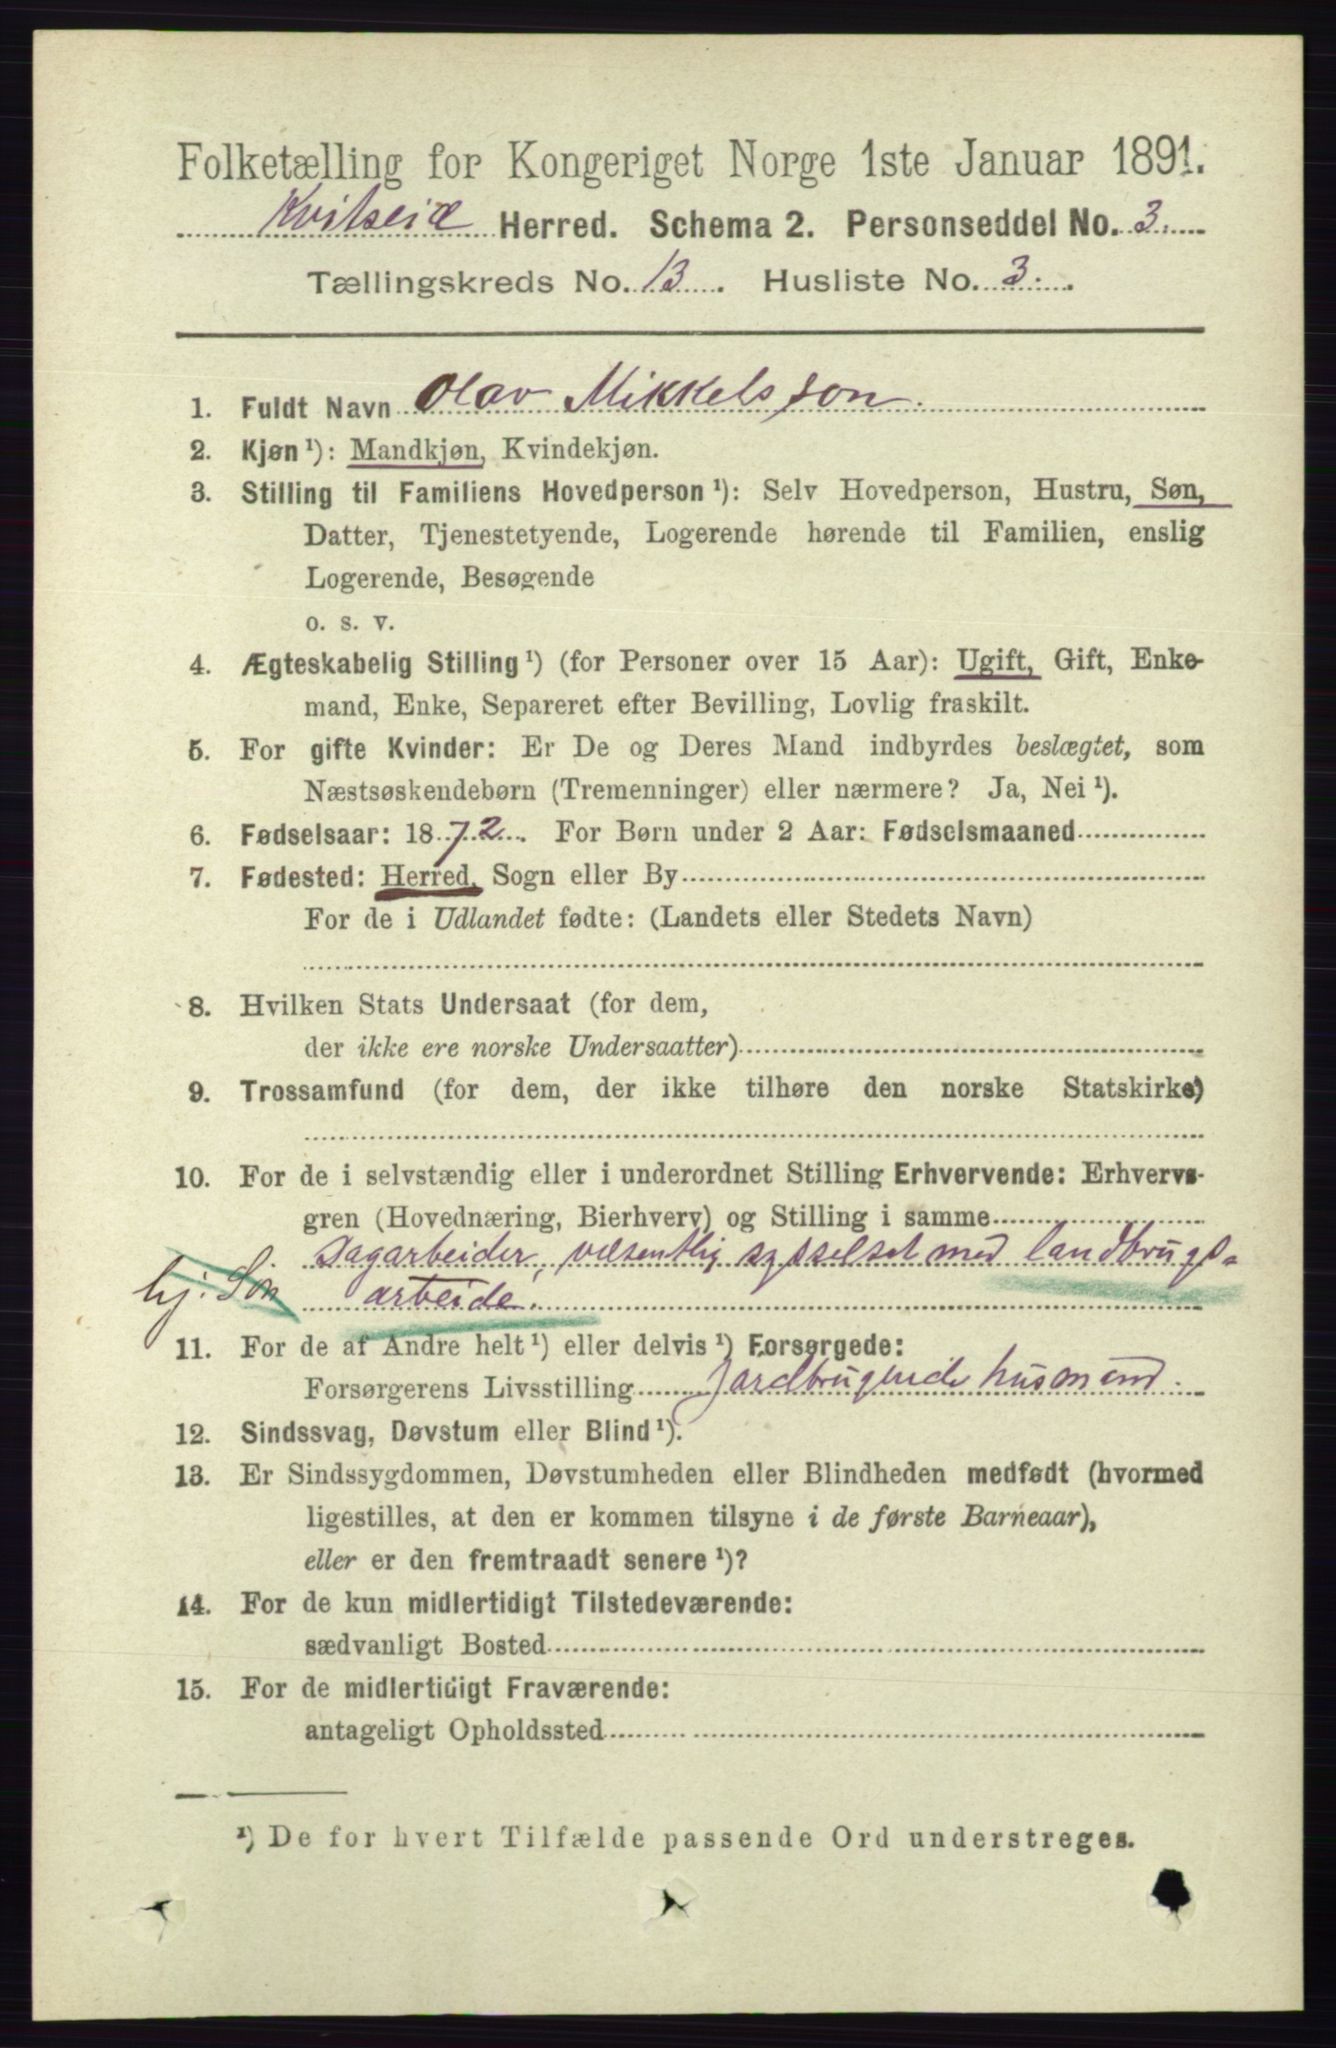 Folketælling for Kongeriget Norge 1ste Januar 1891.
Kvitseid Herred. Schema 2. Personseddel No. 3.
Tællingskreds No. 13. Husliste No. 3.
1. Fuldt Navn Olav Mikkelsson.
2. Kjøn ¹): Mandkjøn, Kvindekjøn.
3. Stilling til Familiens Hovedperson ¹): Selv Hovedperson, Hustru, Søn,
Datter, Tjenestetyende, Logerende hørende til Familien, enslig
Logerende, Besøgende
o. s. v.
4. Ægteskabelig Stilling ¹) (for Personer over 15 Aar): Ugift, Gift, Enke-
mand, Enke, Separeret efter Bevilling, Lovlig fraskilt.
5. For gifte Kvinder: Er De og Deres Mand indbyrdes beslægtet, som
Næstsøskendebørn (Tremenninger) eller nærmere? Ja, Nei ¹).
6. Fødselsaar: 1872. For Børn under 2 Aar: Fødselsmaaned
7. Fødested: Herred, Sogn eller By
For de i Udlandet fødte: (Landets eller Stedets Navn)
8. Hvilken Stats Undersaat (for dem,
der ikke ere norske Undersaatter)
9. Trossamfund (for dem, der ikke tilhøre den norske Statskirke)
10. For de i selvstændig eller i underordnet Stilling Erhvervende: Erhvervs-
gren (Hovednæring, Bierhverv) og Stilling i samme
Dagarbeider, væsentlig sysselsat med landbrugs-
hj. Søn arbeide.
11. For de af Andre helt ¹) eller delvis ¹) Forsørgede:
Forsørgerens Livsstilling Jordbrugende husmand.
12. Sindssvag, Døvstum eller Blind ¹).
13. Er Sindssygdommen, Døvstumheden eller Blindheden medfødt (hvormed
ligestilles, at den er kommen tilsyne i de første Barneaar),
eller er den fremtraadt senere ¹)?
14. For de kun midlertidigt Tilstedeværende:
sædvanligt Bosted
15. For de midlertidigt Fraværende:
antageligt Opholdssted
¹) De for hvert Tilfælde passende Ord understreges.